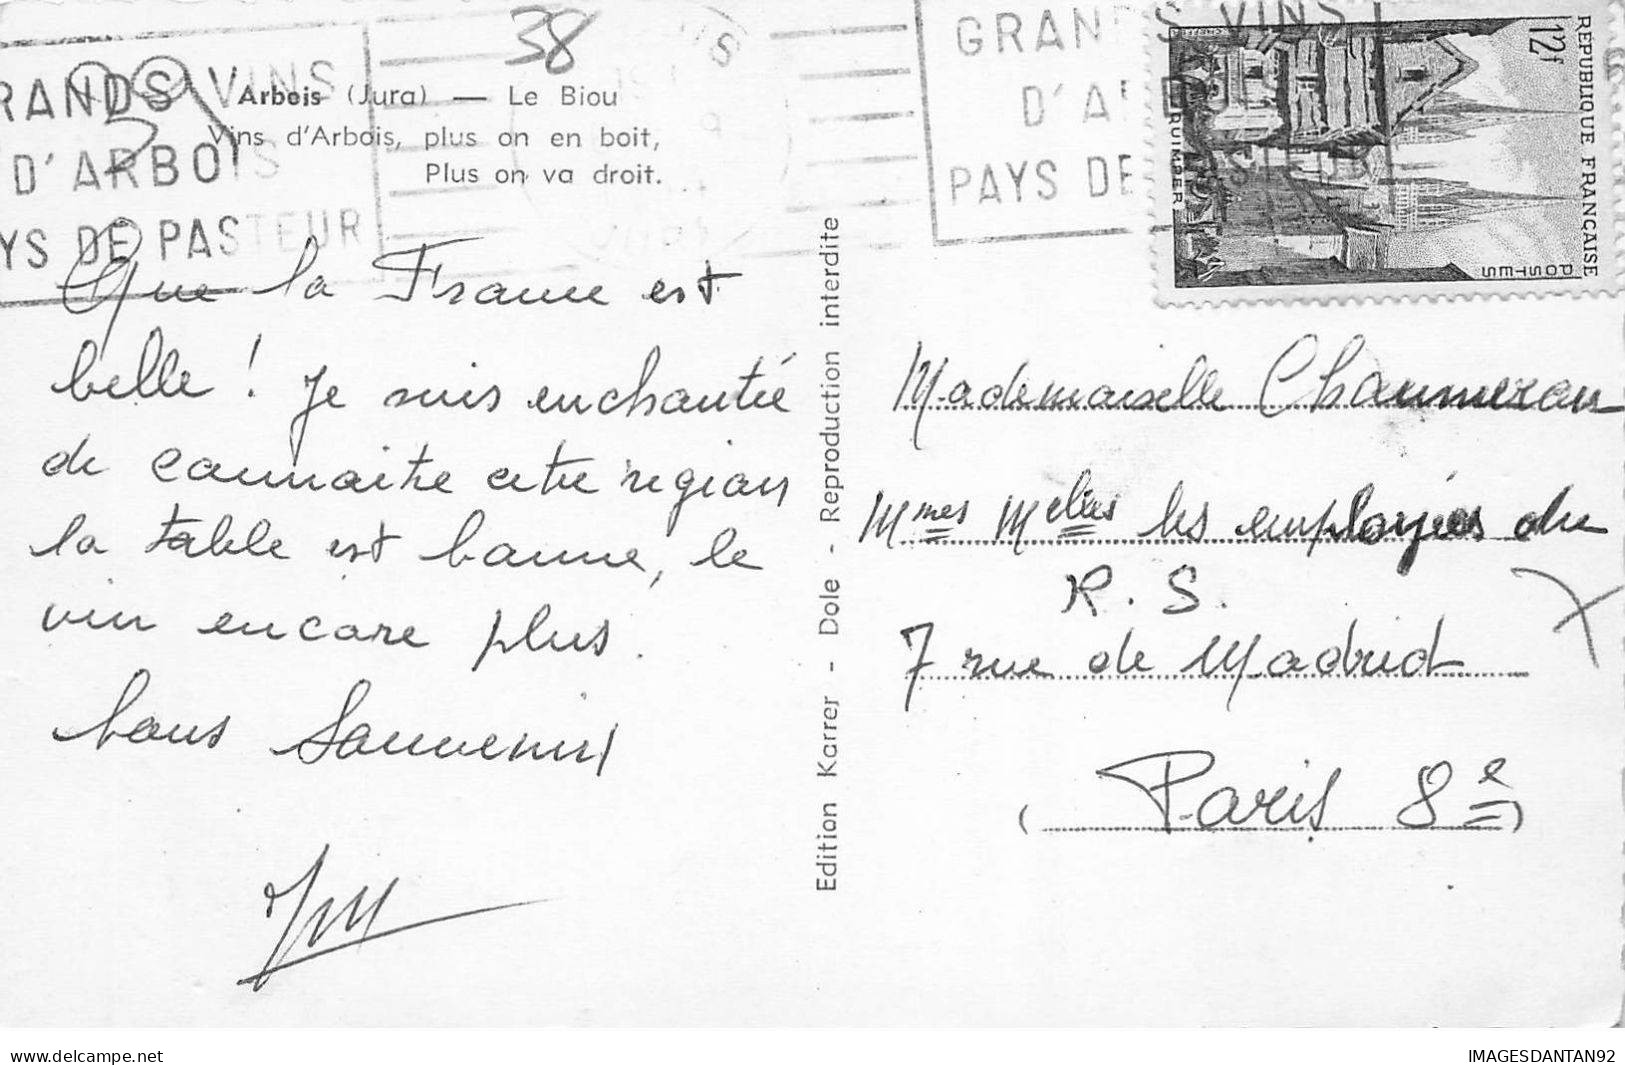 38
GRANDS VINS
D'ARBOIS
PAYS DE PASTEUR
Arbois (Jura) — Le Biou
Vins d'Arbois, plus on en boit,
Plus on va droit.
Que la France est
belle ! Je suis enchantée
de connaitre cette region
la table est bonne, le
vin encore plus.
bons Souvenirs
Edition Karrer - Dole - Reproduction interdite
GRANDS VINS
D'AR
PAYS DE PASTEUR
REPUBLIQUE FRANÇAISE
12f
POSTES
QUIMPER
Mademoiselle Chaumeron
Mmes Melles les employées du
R. S.
7 rue de Madrid
(Paris 8e)
www.delcampe.net
IMAGESDANTAN92